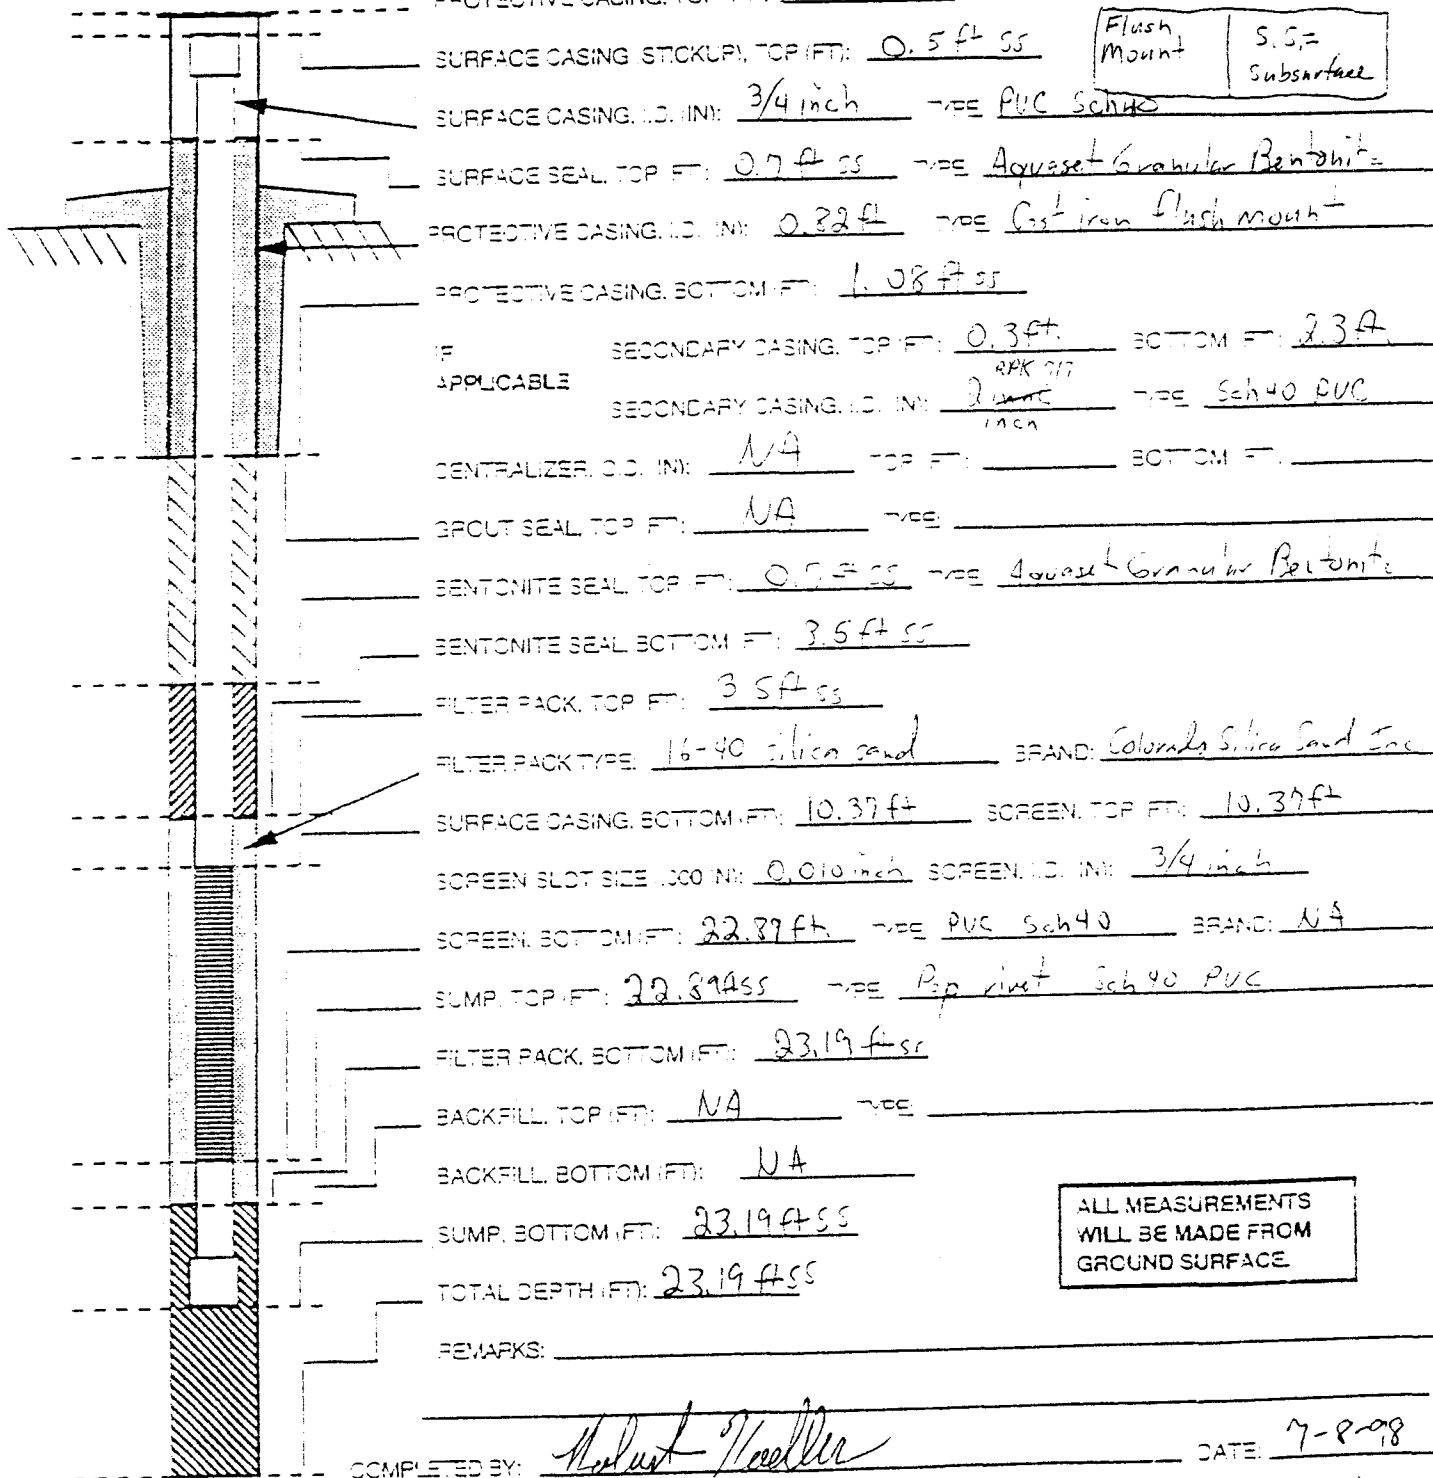 PROTECTIVE CASING, TOP
SURFACE CASING (STICKUP), TOP (FT): 0.5 ft ss
Flush Mount
S.S.= Subsurface
SURFACE CASING, I.D. (IN): 3/4 inch TYPE PVC Sch 40
SURFACE SEAL, TOP (FT): 0.7 ft ss TYPE Aquaset Granular Bentonite
PROTECTIVE CASING, I.D. (IN): 0.82 ft TYPE Cast iron flush mount
PROTECTIVE CASING, BOTTOM (FT): 1.08 ft ss
IF APPLICABLE
SECONDARY CASING, TOP (FT): 0.3 ft. BOTTOM (FT): 2.3 ft
RPK 7/7
SECONDARY CASING, I.D. (IN): 2 inch TYPE Sch 40 PVC
CENTRALIZER, O.D. (IN): NA TOP (FT): BOTTOM (FT):
GROUT SEAL, TOP (FT): NA TYPE:
BENTONITE SEAL, TOP (FT): ss TYPE Aquaset Granular Bentonite
BENTONITE SEAL, BOTTOM (FT): 3.5 ft ss
FILTER PACK, TOP (FT): 3.5 ft ss
FILTER PACK TYPE: 16-40 silica sand BRAND: Colorado Silica Sand Inc
SURFACE CASING, BOTTOM (FT): 10.37 ft SCREEN, TOP (FT): 10.37 ft
SCREEN SLOT SIZE (.000 IN): 0.010 inch SCREEN, I.D. (IN): 3/4 inch
SCREEN, BOTTOM (FT): 22.89 ft TYPE PVC Sch 40 BRAND: NA
SUMP, TOP (FT): 22.89 ft ss TYPE Pop rivet Sch 40 PVC
FILTER PACK, BOTTOM (FT): 23.19 ft ss
BACKFILL, TOP (FT): NA TYPE:
BACKFILL, BOTTOM (FT): NA
SUMP, BOTTOM (FT): 23.19 ft SS
TOTAL DEPTH (FT): 23.19 ft SS
ALL MEASUREMENTS
WILL BE MADE FROM
GROUND SURFACE.
REMARKS:
COMPLETED BY: DATE: 7-8-98